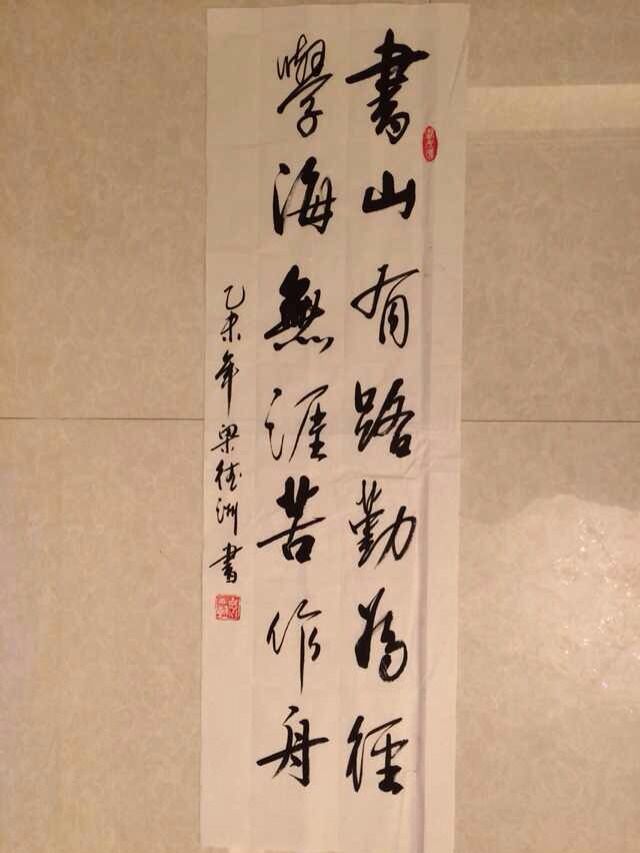 書山有路勤為徑
學海無涯苦作舟
乙未年梁德洲書